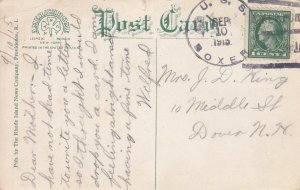 9/10/15
Post Card
LEIPZIG BERLIN
NEW YORK
Pub. by The Rhode Island News Company, Providence, R. I.
U.S.S.
SEP
10
1915
BOXER
Dear Mother- I
have not had time
to write you a letter
so I thought I would
drop you a card. I am
feeling alright and
having a fine time
Wilfred
Mrs. J. D. King
10 Middle St
Dover N. H.